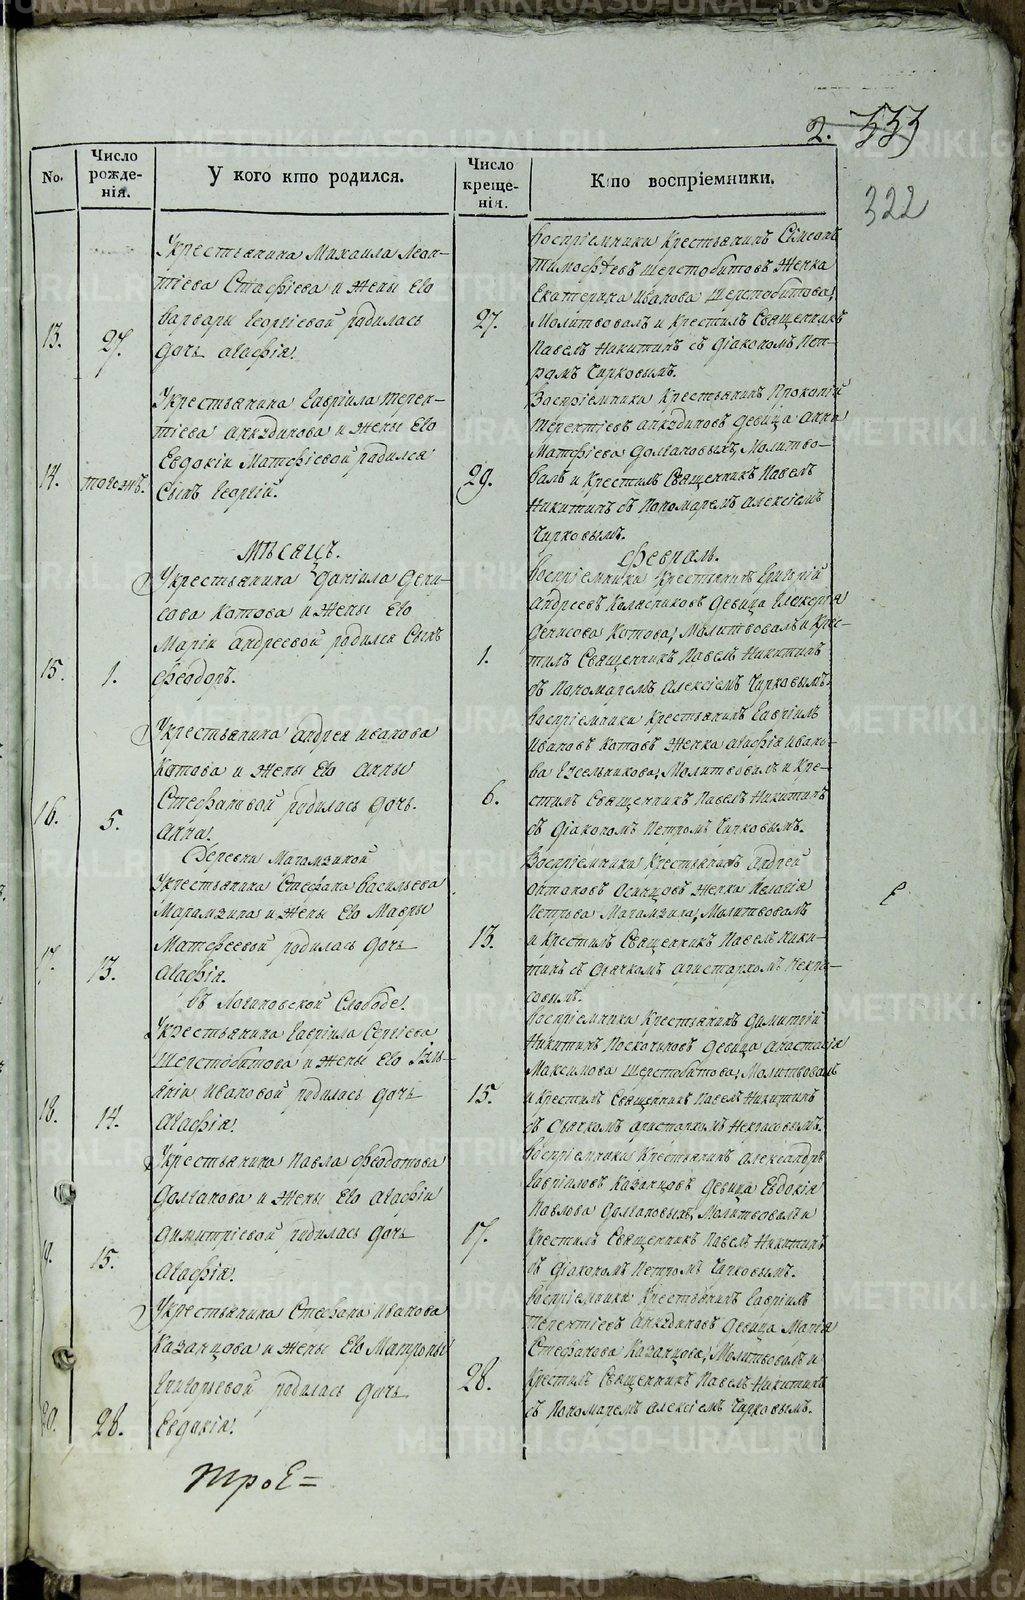 2. 333
322
No.
Число рожде-нія.
У кого кто родился.
Число креще-нія.
Кто воспріемники.
13.
27.
У крестьянина Михаила Леон-
тіева Стафіева и жены его
варвары Георгіевой родилась
дочь агафія.
27.
воспріемники крестьянинъ Симеонъ
тимофѣевъ шерстобитовъ женка
Екатерина иванова шерстобитова;
Молитвовалъ и крестилъ Священникъ
Павелъ Никитинъ съ діакономъ Пет-
ромъ Чирковымъ.
14.
тогожъ.
У крестьянина Гавріила терен-
тіева анкудинова и жены его
Евдокіи Матфіевой родился
Сынъ Георгій.
29.
Воспріемники крестьянинъ Прокопій
терентіевъ анкудиновъ девица анна
Матфіева долгановыхъ, Молитво-
валъ и крестилъ Священникъ Павелъ
Никитинъ съ Пономаремъ алексіемъ
Чирковымъ.
Мѣсяцъ.
Февраль.
15.
1.
У крестьянина даніила дени-
сова Котова и жены его
Маріи андреевой родился Сынъ
Феодоръ.
1.
воспріемники крестьянинъ григорій
андреевъ Колясниковъ девица гликерія
денисова Котова; Молитвовалъ и кре-
тилъ Священникъ Павелъ Никитинъ
съ Пономаремъ алексіемъ Чирковымъ.
16.
5.
У крестьянина андрея иванова
Котова и жены его анны
Стефановой родилась дочь
анна.
6.
воспріемники крестьянинъ гавріилъ
ивановъ котовъ женка агафія ивано-
ва; Молитвовалъ и кре-
стилъ Священникъ Павелъ Никитинъ
съ діакономъ Петромъ Чирковымъ.
Деревни Магамзиной
17.
13.
У крестьянина Стефана васильева
Магамзина и жены его Мавры
Матфеевой родилась дочь
агафія.
13.
Воспріемники крестьянинъ андрей
Осинцовъ женка Пелагія
Петрова Магамзина; Молитвовалъ
и крестилъ Священникъ Павелъ Ники-
тинъ съ дьячкомъ аристархомъ Некра-
совымъ.
въ Логиновской Слободе.
18.
14.
У крестьянина Гавріила Сергіева
шерстобитова и жены его Уль-
яніи ивановой родилась дочь
агафія.
15.
воспріемники крестьянинъ димитрій
Никитинъ Поскочиновъ девица анастасія
Максимова шерстобитова; Молитвовалъ
и крестилъ Священникъ Павелъ Никитинъ
съ дьячкомъ аристархомъ Некрасовымъ.
19.
15.
У крестьянина Павла Феодотова
долганова и жены его агафіи
димитріевой родилась дочь
агафія.
17.
воспріемники крестьянинъ александръ
гавріиловъ казанцовъ девица Евдокія
Павлова долгановыхъ; Молитвовалъ и
крестилъ Священникъ Павелъ Никитинъ
съ діакономъ Петромъ Чирковымъ.
20.
28.
У крестьянина Стефана иванова
Казанцова и жены его Матроны
григорьевой родилась дочь
Евдокія.
28.
воспріемники крестьянинъ гавріилъ
терентіевъ анкудиновъ девица Марія
Стефанова Казанцова; Молитвовалъ и
крестилъ Священникъ Павелъ Никитинъ
съ Пономаремъ алексіемъ Чирковымъ.
троЕ=
METRIKI.GASO-URAL.RU